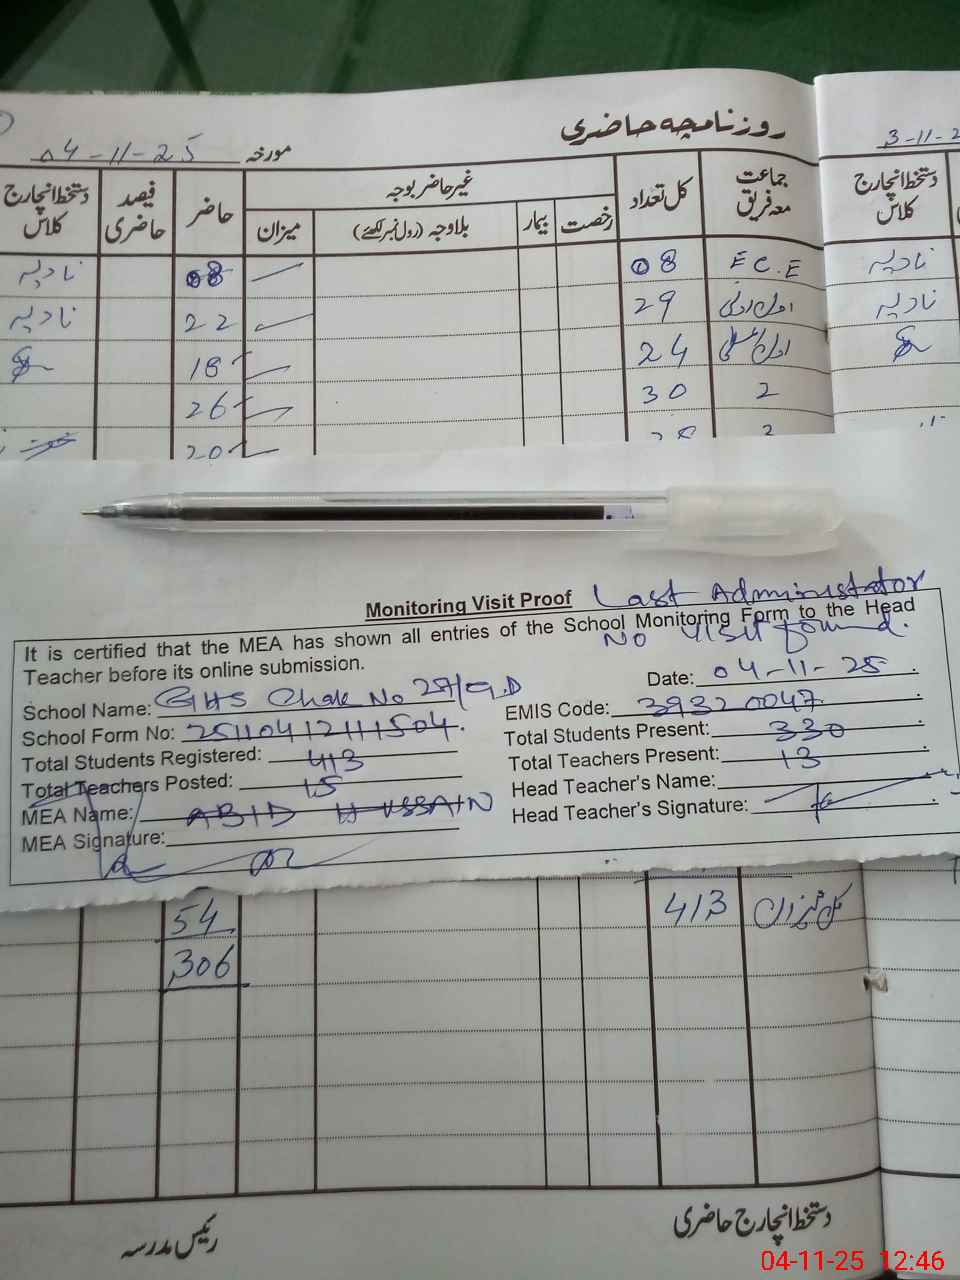 روزنامچہ حاضری
مورخہ 04-11-25
3-11-2
جماعت معہ فریق کل تعداد غیر حاضر بوجہ حاضر فیصد حاضری دستخط انچارج کلاس
رخصت بیمار بلاوجہ (رول نمبر لکھئے) میزان
دستخط انچارج کلاس
E C.E 08 08 نادیہ نادیہ
اول ادنی 29 22 نادیہ نادیہ
اول اعلی 24 18
2 30 26
20
Monitoring Visit Proof Last Administator
No visit found.
It is certified that the MEA has shown all entries of the School Monitoring Form to the Head
Teacher before its online submission.
Date: 04-11-25
School Name: GHS Chak No 29/G.D
EMIS Code: 39320047
School Form No: 25110412111504
Total Students Present: 330
Total Students Registered: 413
Total Teachers Present: 13
Total Teachers Posted: 15
Head Teacher's Name:
MEA Name: ABID HUSSAIN
Head Teacher's Signature:
MEA Signature:
کل میزان 413 54
306
دستخط انچارج حاضری
رئیس مدرسہ
04-11-25 12:46